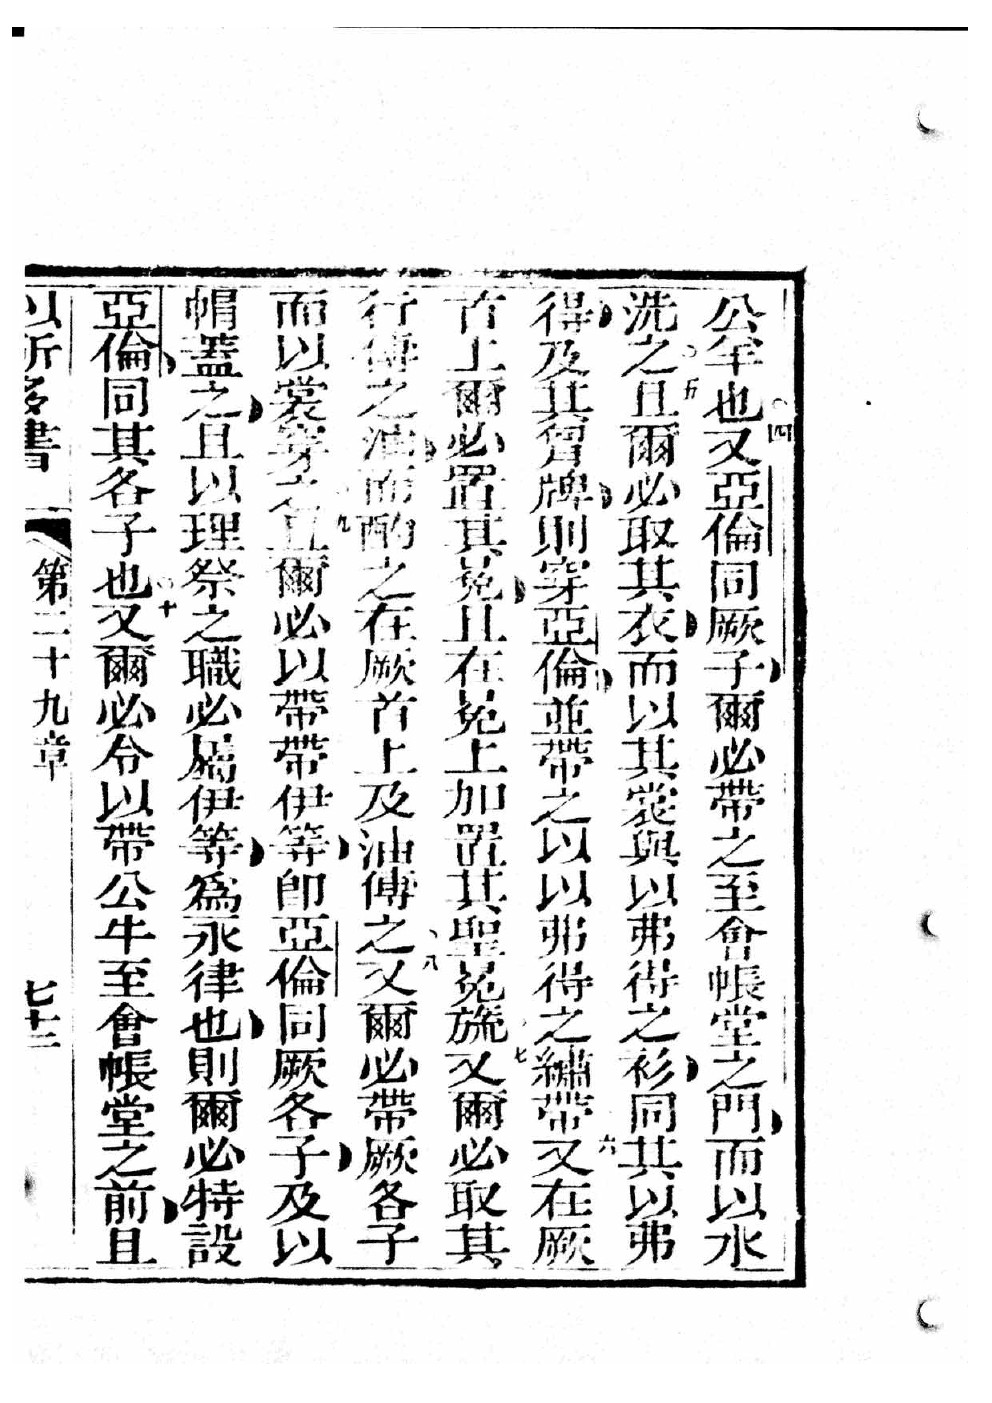 公羊也○四又亞倫同厥子爾必帶之至會帳堂之門而以水
洗之○五且爾必取其衣而以其裳與以弗得之衫同其以弗
得及其胷牌則穿亞倫並帶之以以弗得之繡帶六又在厥
首上爾必置其冕且在冕上加置其聖冕旒七又爾必取其
行傅之油而酌之在厥首上及油傅之○八又爾必帶厥各子
而以裳穿之九且爾必以帶帶伊等卽亞倫同厥各子及以
帽蓋之且以理祭之職必屬伊等為永律也則爾必特設
亞倫同其各子也○十又爾必令以帶公牛至會帳堂之前且
以所多書 第二十九章 七十三